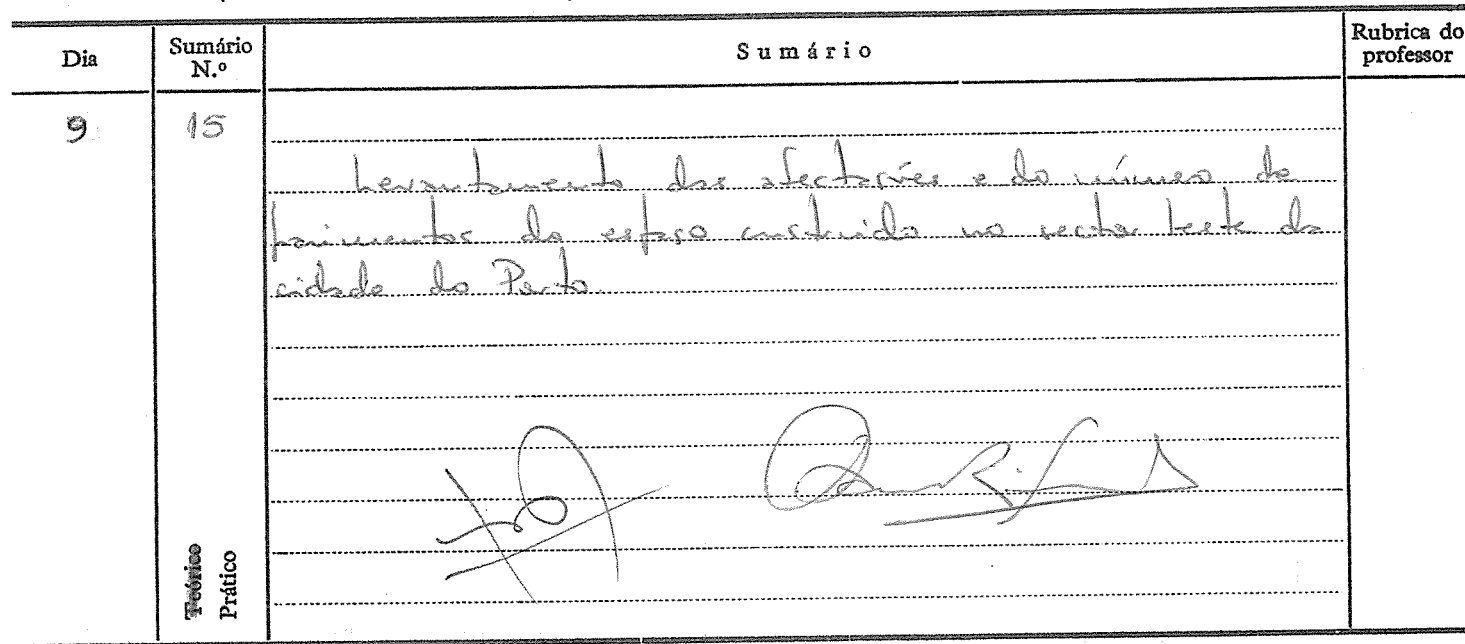 Dia
Sumário
N.º
Sumário
Rubrica do
professor
9
15
Levantamento das afectações e do número de
pavimentos do espaço construído no sector leste da
cidade do Porto
Teórico
Prático